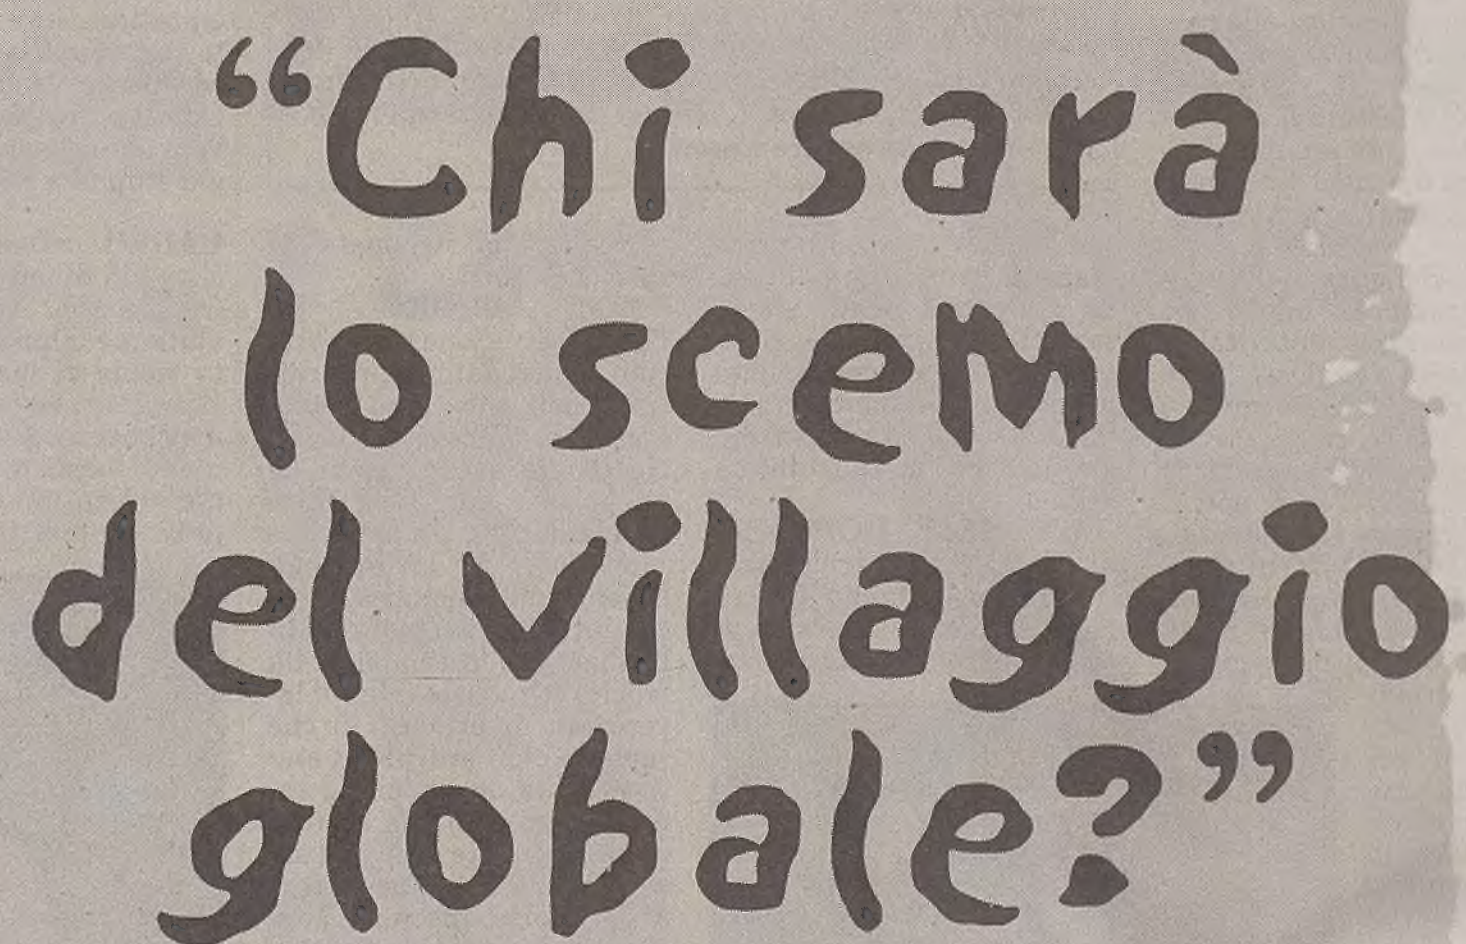 “Chi sarà
lo scemo
del villaggio
globale?”